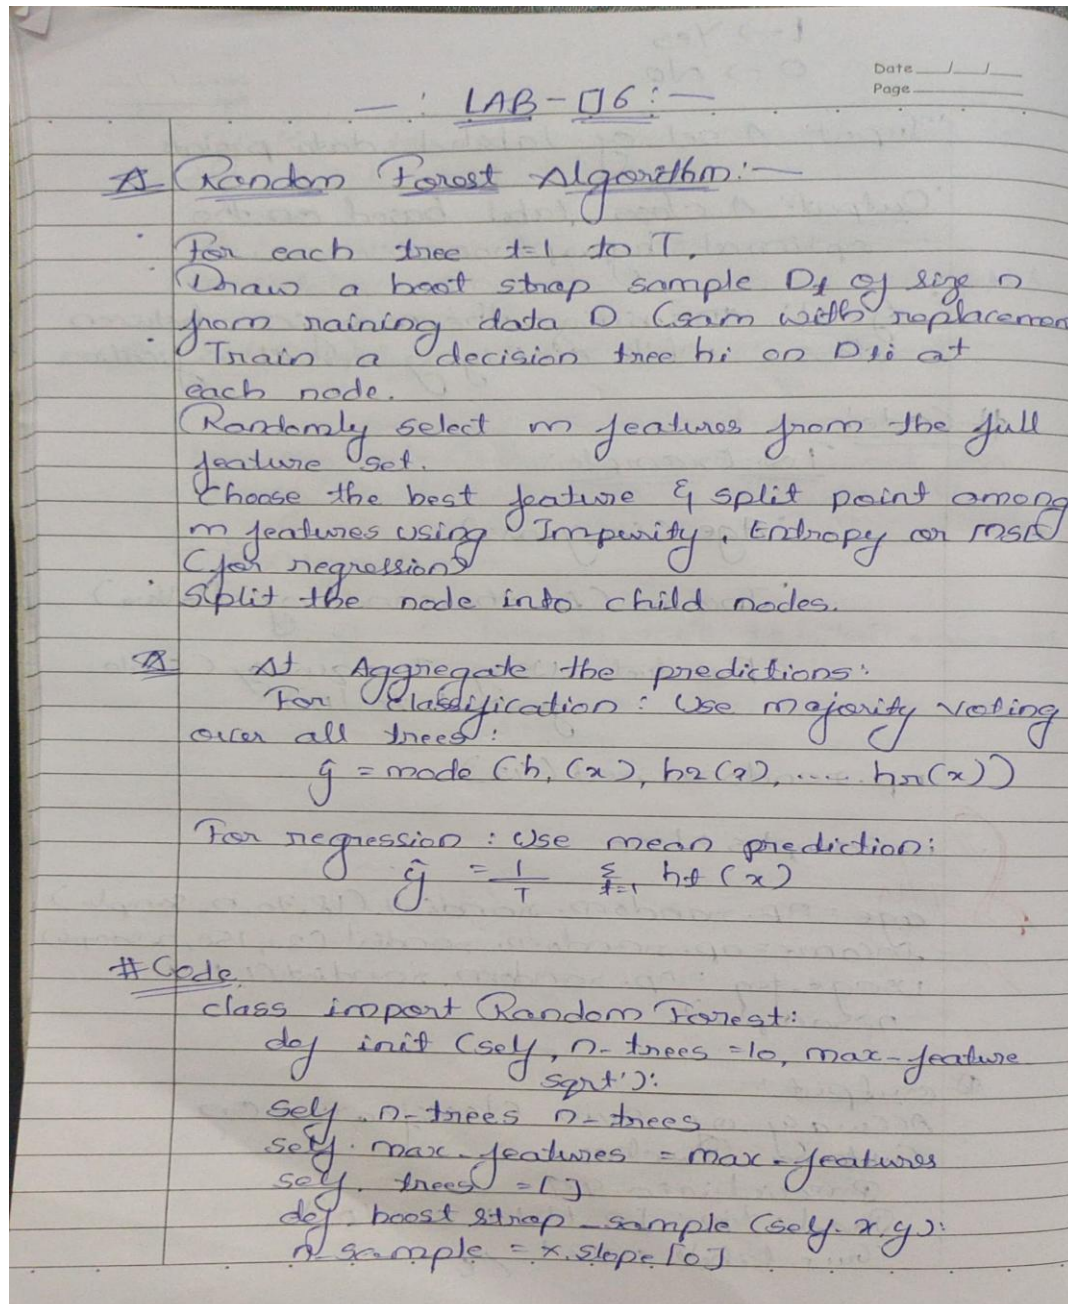 Date __/__/__
Page
— : LAB - 06 : —
A Random Forest Algorithm :—
For each tree t=1 to T.
Draw a boot strap sample Dt of size n
from raining data D (sam with replacemen
Train a decision tree hi on Dti at
each node.
Randomly select m features from the full
feature set.
Choose the best feature & split point among
m features using Impurity, Entropy or MSE
(for regression)
Split the node into child nodes.
At Aggregate the predictions:
For Classification : Use majority voting
over all trees :
ŷ = mode (h, (x), h2(x), .... hn(x))
For regression : Use mean prediction:
ŷ = 1/T Σ t=1 ht (x)
# Code
class import Random Forest:
def init (self, n- trees =10, max-feature
sqrt'):
self. n-trees n-trees
self. max-features = max-features
self. trees =[]
def boost strap-sample (self. x,y):
n sample = x.slope [0]